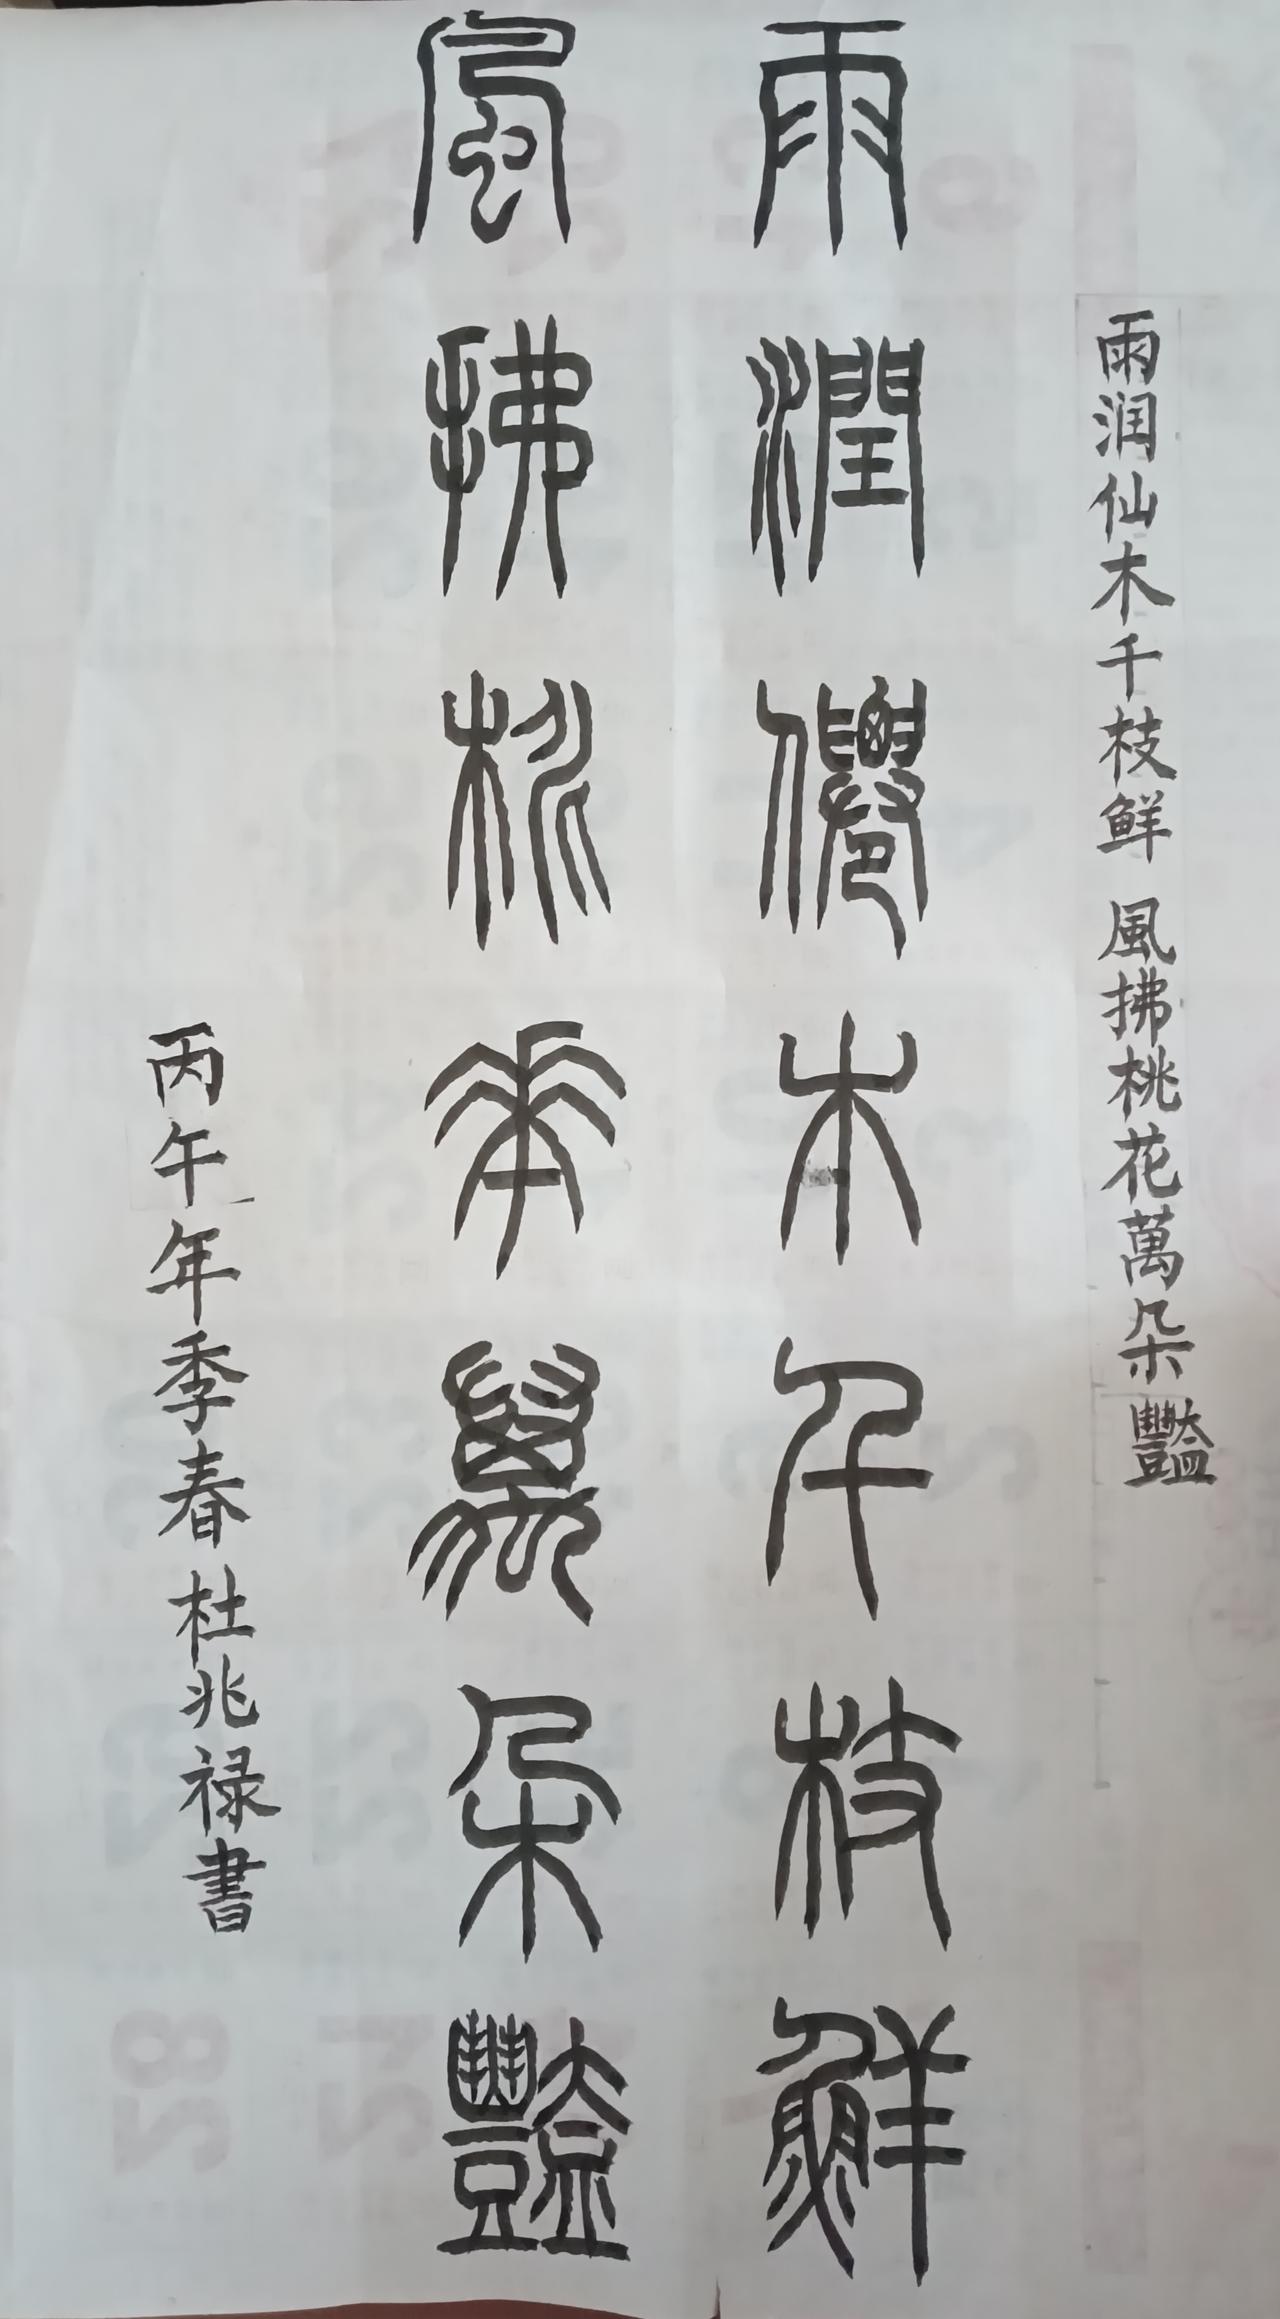 雨润仙木千枝鲜 風拂桃花萬朵豔
雨潤僊木千枝鮮
風拂桃華萬朵豔
丙午年季春 杜兆禄書